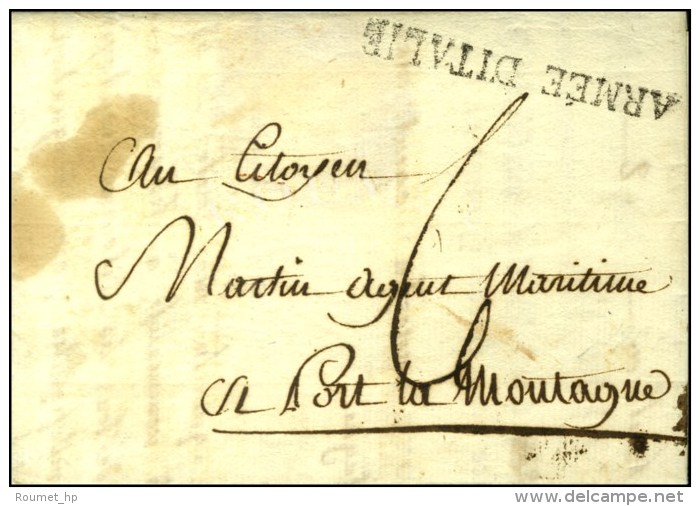 ARMÉE DITALIE
Au Citoyen
Martin agent Maritime
A Port la Montagne
6
Roumet_hp
delcampe.net